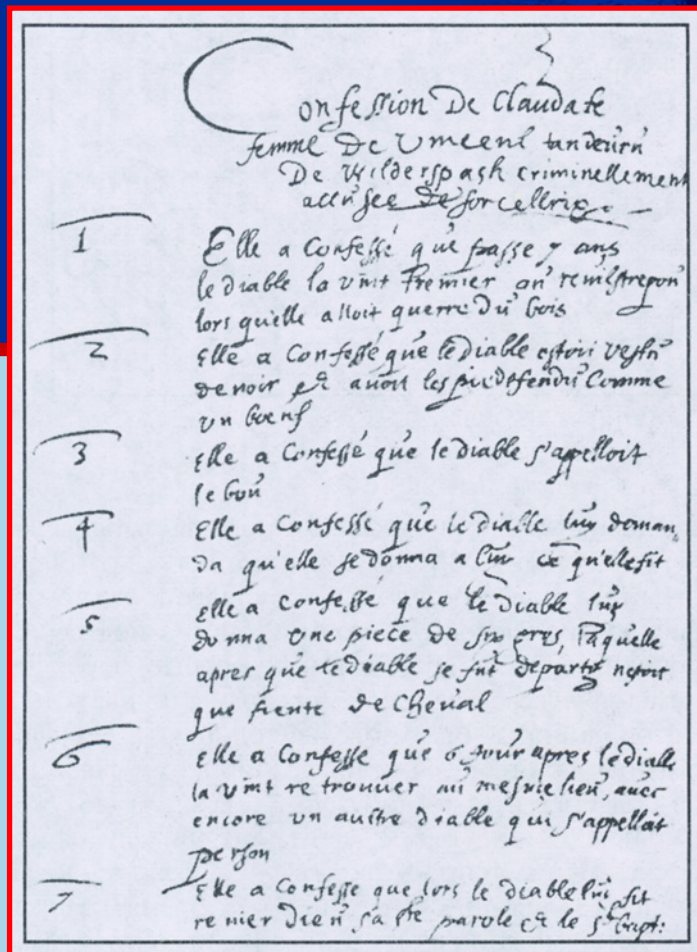 Confession De Claudate
femme De Vincent tandeurn
De Wilderspach criminellement
accusee de sorcellrie
1 Elle a Confessé que passe 7 ans
le diable la vint Premier
lors quelle alloit querre du bois
2 Elle a Confessé que le diable estoit vestu
de noir et avoit les pieds fendu Comme
un boeuf
3 Elle a Confessé que le diable s'appelloit
le bon
4 Elle a Confessé que le diable luy deman,
da qu'elle se donna a luy ce qu'elle fit
5 Elle a confessé que le diable luy
donna une piece de gros, laquelle
apres que le diable se fut departy nestoit
que fiente de Cheval
6 Elle a Confesse que 6 jour apres le diable
la vint retrouver au mesme lieu, avec
encore un aultre diable qui s'appelloit
person
7 Elle a Confesse que lors le diable luy fit
renier dieu sa ste parole et le st bapt: